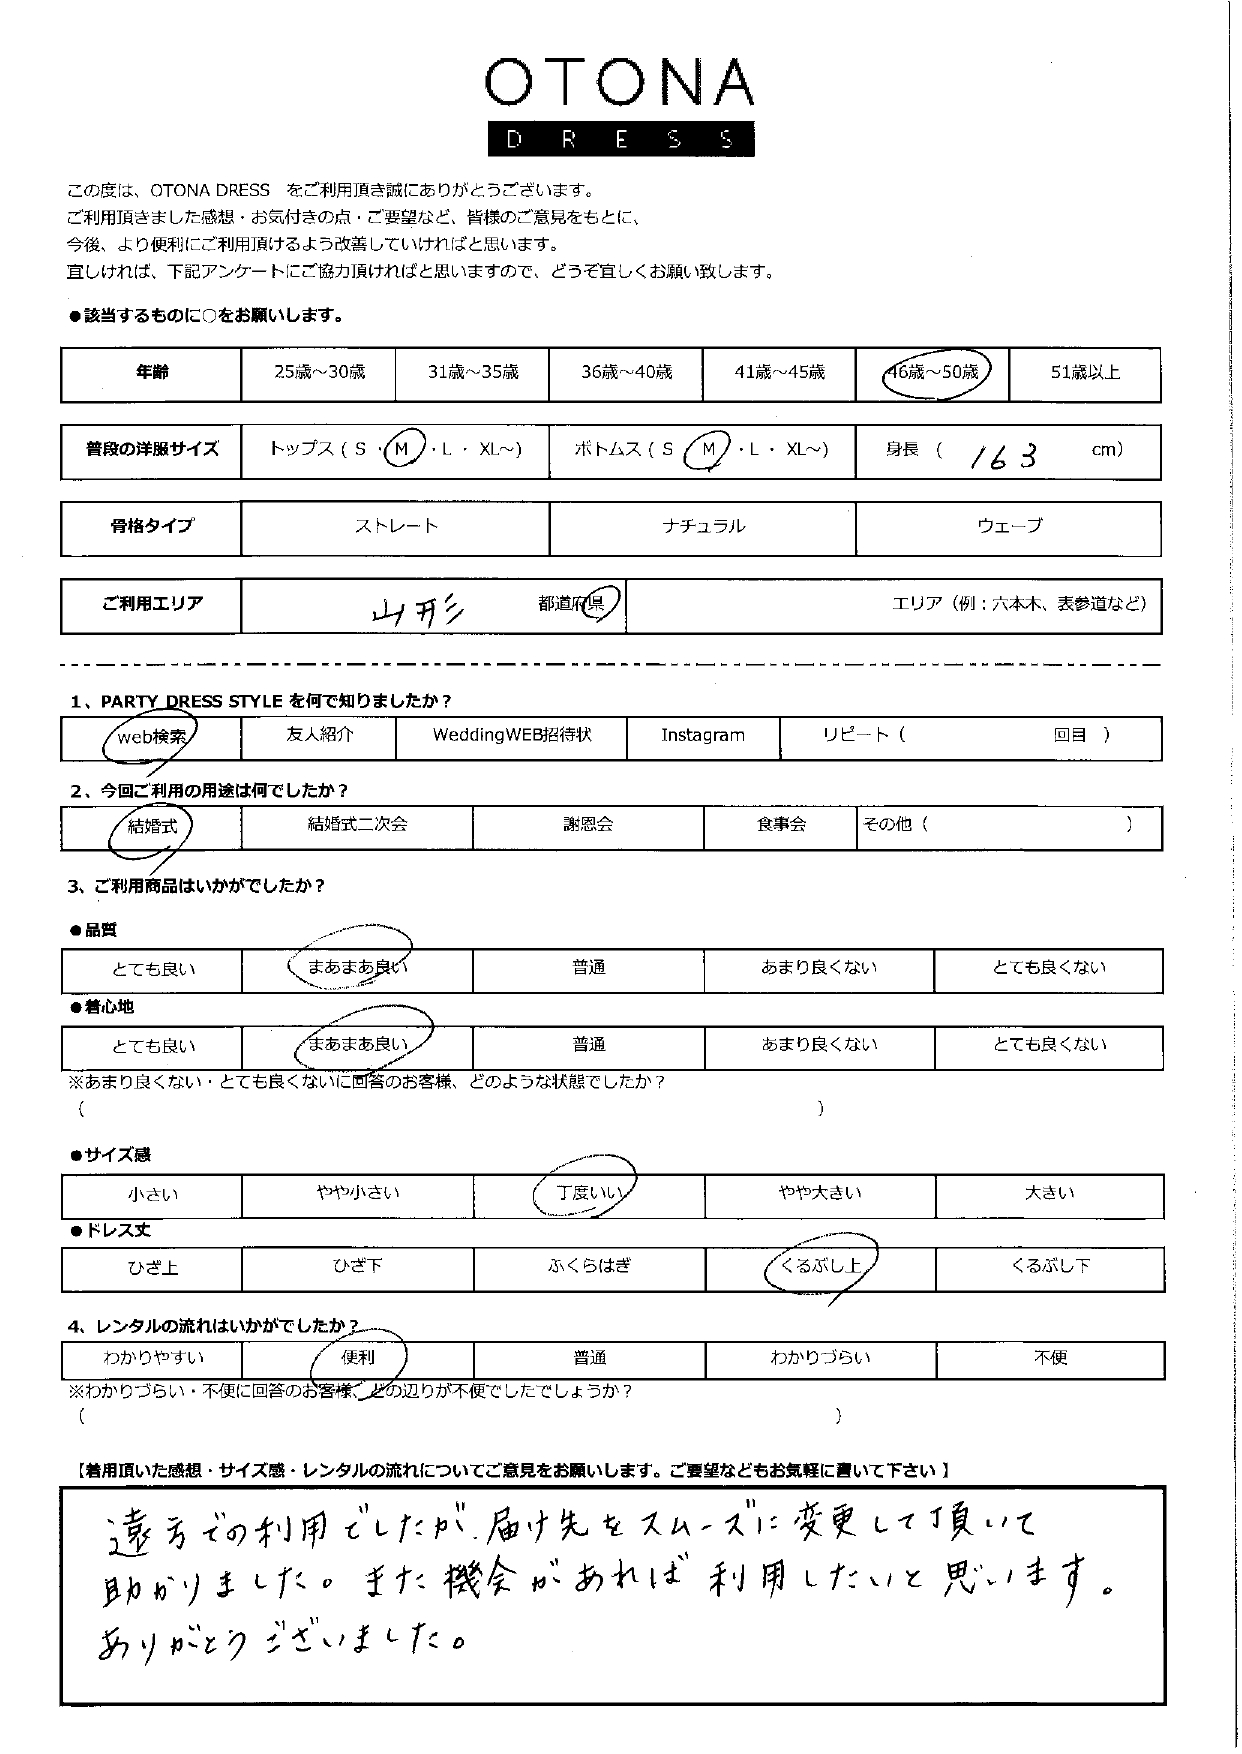 OTONA
DRESS
この度は、OTONA DRESS をご利用頂き誠にありがとうございます。
ご利用頂きました感想・お気付きの点・ご要望など、皆様のご意見をもとに、
今後、より便利にご利用頂けるよう改善していければと思います。
宜しければ、下記アンケートにご協力頂ければと思いますので、どうぞ宜しくお願い致します。
●該当するものに○をお願いします。
年齢 25歳～30歳 31歳～35歳 36歳～40歳 41歳～45歳 46歳～50歳 51歳以上
普段の洋服サイズ トップス ( S ・ M ・ L ・ XL～) ボトムス ( S ・ M ・ L ・ XL～) 身長 ( 163 cm)
骨格タイプ ストレート ナチュラル ウェーブ
ご利用エリア 山形 都道府県 エリア（例：六本木、表参道など）
1、PARTY DRESS STYLE を何で知りましたか？
web検索 友人紹介 WeddingWEB招待状 Instagram リピート ( 回目 )
2、今回ご利用の用途は何でしたか？
結婚式 結婚式二次会 謝恩会 食事会 その他 ( )
3、ご利用商品はいかがでしたか？
●品質
とても良い まあまあ良い 普通 あまり良くない とても良くない
●着心地
とても良い まあまあ良い 普通 あまり良くない とても良くない
※あまり良くない・とても良くないに回答のお客様、どのような状態でしたか？
( )
●サイズ感
小さい やや小さい 丁度いい やや大きい 大きい
●ドレス丈
ひざ上 ひざ下 ふくらはぎ くるぶし上 くるぶし下
4、レンタルの流れはいかがでしたか？
わかりやすい 便利 普通 わかりづらい 不便
※わかりづらい・不便に回答のお客様、どの辺りが不便でしたでしょうか？
( )
【着用頂いた感想・サイズ感・レンタルの流れについてご意見をお願いします。ご要望などもお気軽に書いて下さい】
遠方での利用でしたが、届け先をスムーズに変更して頂いて
助かりました。また機会があれば利用したいと思います。
ありがとうございました。